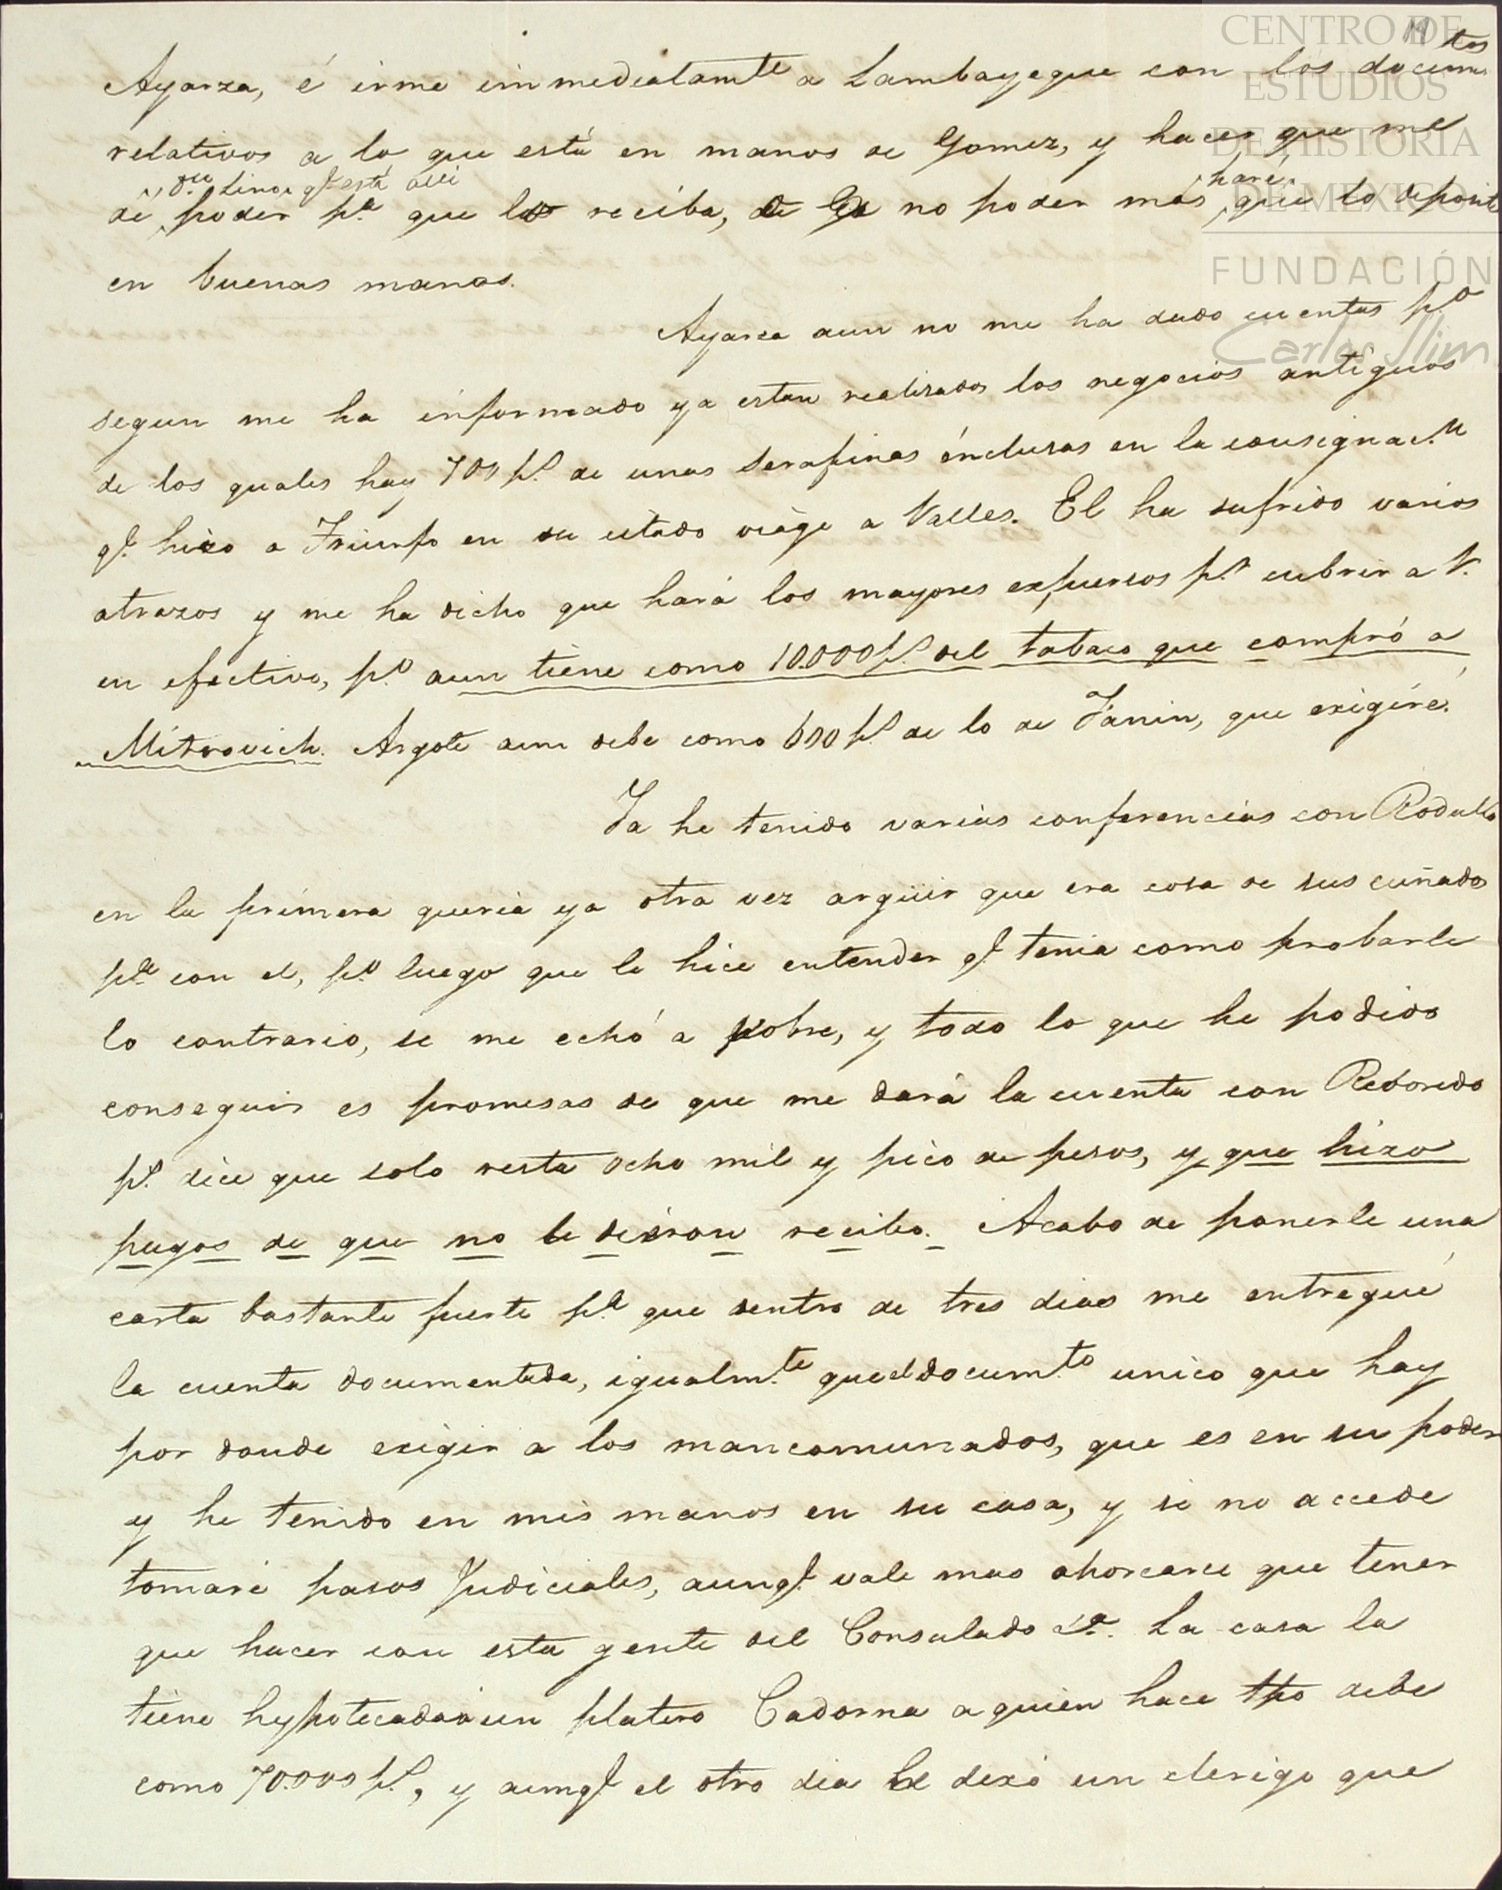 CENTRO DE
ESTUDIOS
DE HISTORIA
DE MEXICO
FUNDACIÓN
Carlos Slim
Ayarza, é irme inmediatamte a Lambayeque con los documtos
relativos a lo que está en manos de Gomez, y hacer que me
dé poder pa que lo reciba, de no poder más haré que lo deposite
en buenas manos.
Ayarza aun no me ha dado cuentas po
segun me ha informado ya estan realisados los negocios antiguos
de los quales hay 700 ps. de unas Serafinas inclusas en la consignacn
qe hizo a Triunfo en su citado viage a Valles. El ha sufrido varios
atrazos y me ha dicho que hará los mayores esfuersos pa cubrir a V.
en efectivo, po aun tiene como 10.000 ps. del tabaco que compró a
Mitrovich. Argote aun debe como 600 ps. de lo de Janin, que exigiré.
Ya he tenido varias conferencias con Rodulfo
en la primera queria ya otra vez argüir que era cosa de sus cuñados
pa con el, po luego que le hice entender qe tenia como probarle
lo contrario, se me echó a pobre, y todo lo que he podido
conseguir es promesas de que me dará la cuenta con Reboredo
ps. dice que solo resta ocho mil y pico de pesos, y que hizo
pagos de que no le dieron recibo. Acabo de ponerle una
carta bastante fuerte pa que dentro de tres dias me entregué
la cuenta documentada, igualm.te que el docum.to unico que hay
por donde exigir a los mancomunados, que es en su poder
y he tenido en mis manos en su casa, y si no accede
tomaré pasos Judiciales, aunqe vale mas ahorcarse que tener
que hacer con esta gente del Consulado &a. La casa la
tiene hypotecada a un platero Cadorna a quien hace tpo debe
como 70.000 ps., y aunqe el otro dia le dexó un clerigo que